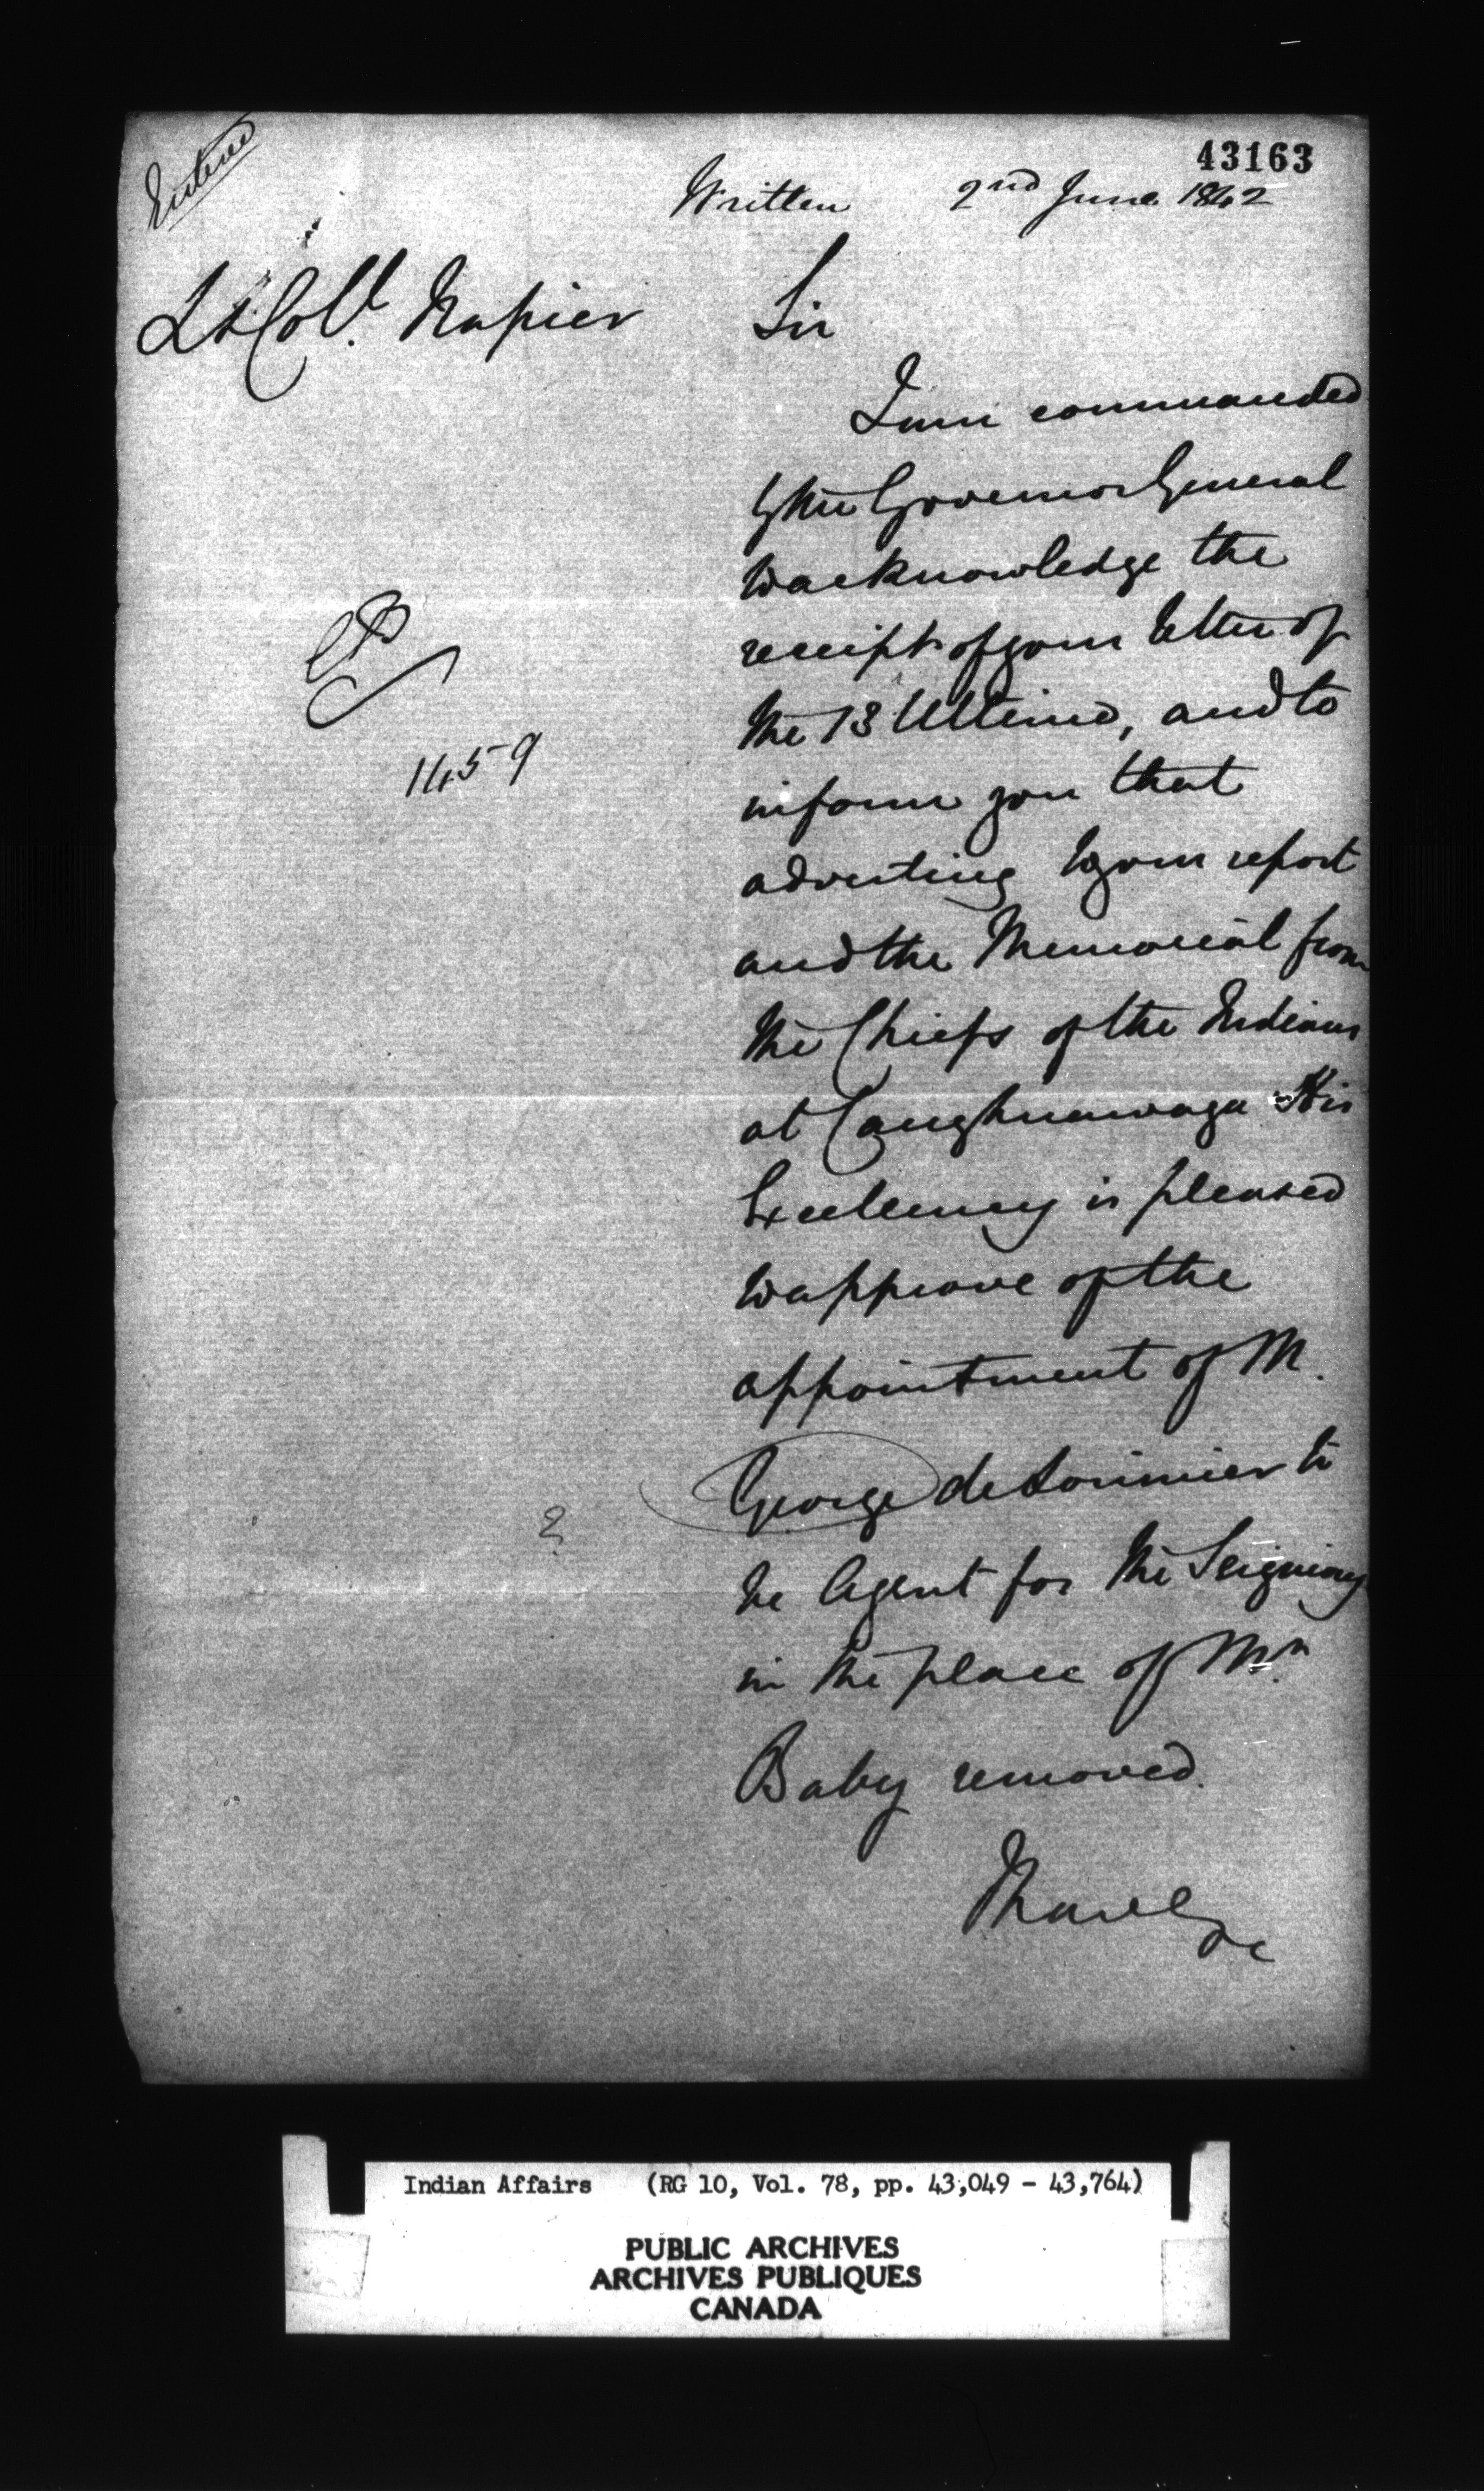 43163
Entered
Written 2nd June 1842
Lt Coll. Napier
Sir
I am commanded
by the Governor General
to acknowledge the
receipt of your letter of
the 13 Ultimo, and to
inform you that
adverting to your report
and the Memorial from
the Chiefs of the Indians
at Caughnawaga His
Excellency is pleased
to approve of the
appointment of M.
George de Lorimier to
be Agent for the Seigniory
in the place of Mr.
Baby removed.
I have &c
1459
?
Indian Affairs (RG 10, Vol. 78, pp. 43,049 - 43,764)
PUBLIC ARCHIVES
ARCHIVES PUBLIQUES
CANADA